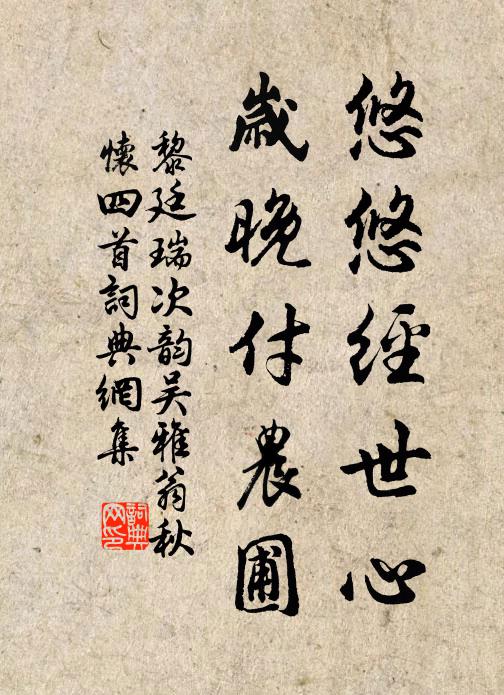 悠悠經世心
歲晚付農圃
黎廷瑞次韵吴雅翁秋
懷四首詞典網集
詞典
网印